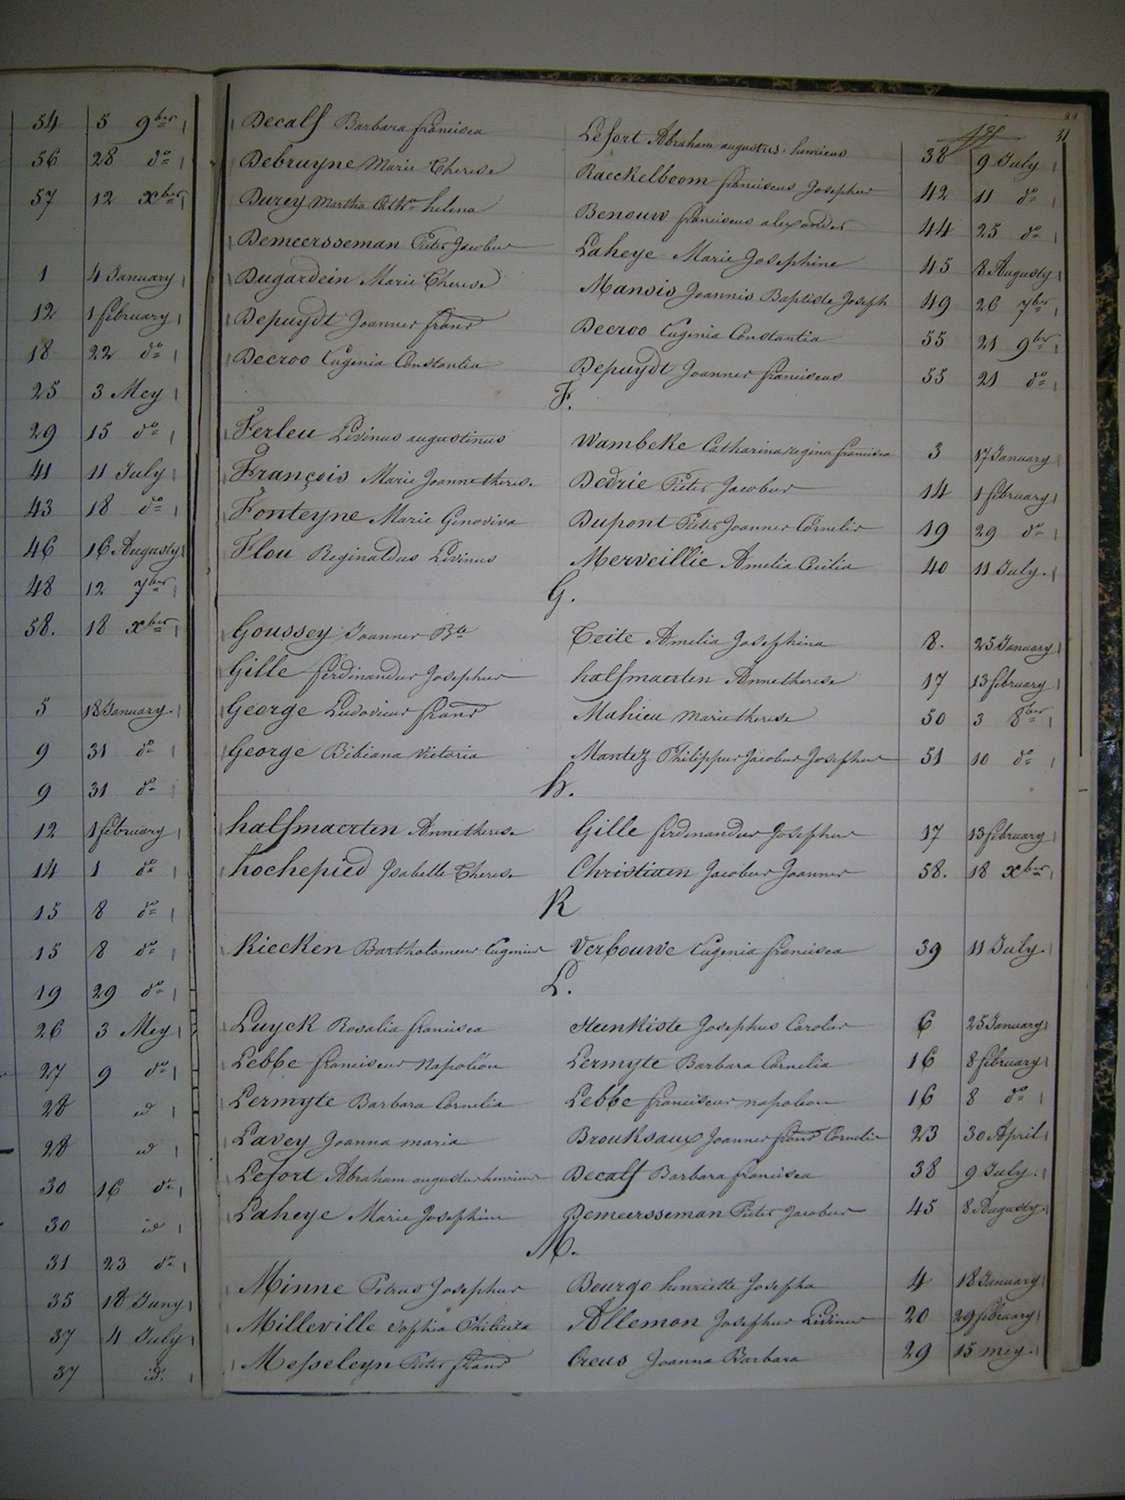 54 5 9ber
56 28 do
57 12 xber
1 4 January
12 1 february
18 22 do
25 3 Mey
29 15 do
41 11 July
43 18 do
46 16 Augusty
48 12 7ber
58. 18 xber
5 18 January
9 31 do
9 31 do
12 1 february
14 1 do
15 8 do
15 8 do
19 29 do
26 3 Mey
27 9 do
28 id
28 id
30 16 do
30 id
31 23 do
35 18 Juny
37 4 July
37 id.
31
Decalf Barbara francisca Lefort Abraham augustus henricus 38 9 July
Debruyne Marie Therese Raeckelboom franciscus Josephus 42 11 do
Durey Martha Cathna helena Benouw franciscus alexander 44 25 do
Demeersseman Pieter Jacobus Laheye Marie Josephine 45 8 Augusty
Dugardein Marie Therese Mansis Joannis Baptiste Joseph 49 26 7ber
Depuydt Joannes francs Decroo Eugenia Constantia 55 21 9ber
Decroo Eugenia Constantia Depuydt Joannes franciscus 55 21 do
F.
Ferleu Livinus augustinus Wambeke Catharina regina francisca 3 17 January
François Marie Jeanne therese Dedrie Pieter Jacobus 14 1 february
Fonteyne Marie Genoviva Dupont Pieter Joannes Cornelis 19 29 do
Flou Reginaldus Livinus Merveillie Amelia Cecilia 40 11 July.
G.
Goussey Joannes Bta Ceite Amelia Josephina 8. 25 January
Gille ferdinandus Josephus halfmaerten Anne therese 17 13 february
George Ludovicus francs Mahieu Marie therese 50 3 8ber
George Bibiana Victoria Mantez Philippus Jacobus Josephus 51 10 do
h.
halfmaerten Anne therese Gille ferdinandus Josephus 17 13 february
hochepied Isabelle Therese Christiaen Jacobus Joannes 58. 18 xber
K
Kiecken Bartholomeus Eugenius Verbouwe Eugenia francisca 39 11 July.
L.
Luyck Rosalia francisca Steenkiste Josephus Carolus 6 25 January
Lebbe franciscus Napoleon Lermyte Barbara Cornelia 16 8 february
Lermyte Barbara Cornelia Lebbe franciscus napoleon 16 8 do
Lavey Joanna maria Brouksaux Joannes francs Cornelis 23 30 April
Lefort Abraham augustus henricus Decalf Barbara francisca 38 9 July.
Laheye Marie Josephine Demeersseman Pieter Jacobus 45 8 Augusty.
M.
Minne Petrus Josephus Bourgo henriette Josepha 4 18 January
Milleville Sophia Allemon Josephus Livinus 20 29 february
Messeleyn Pieter francs Creus Joanna Barbara 29 15 mey.